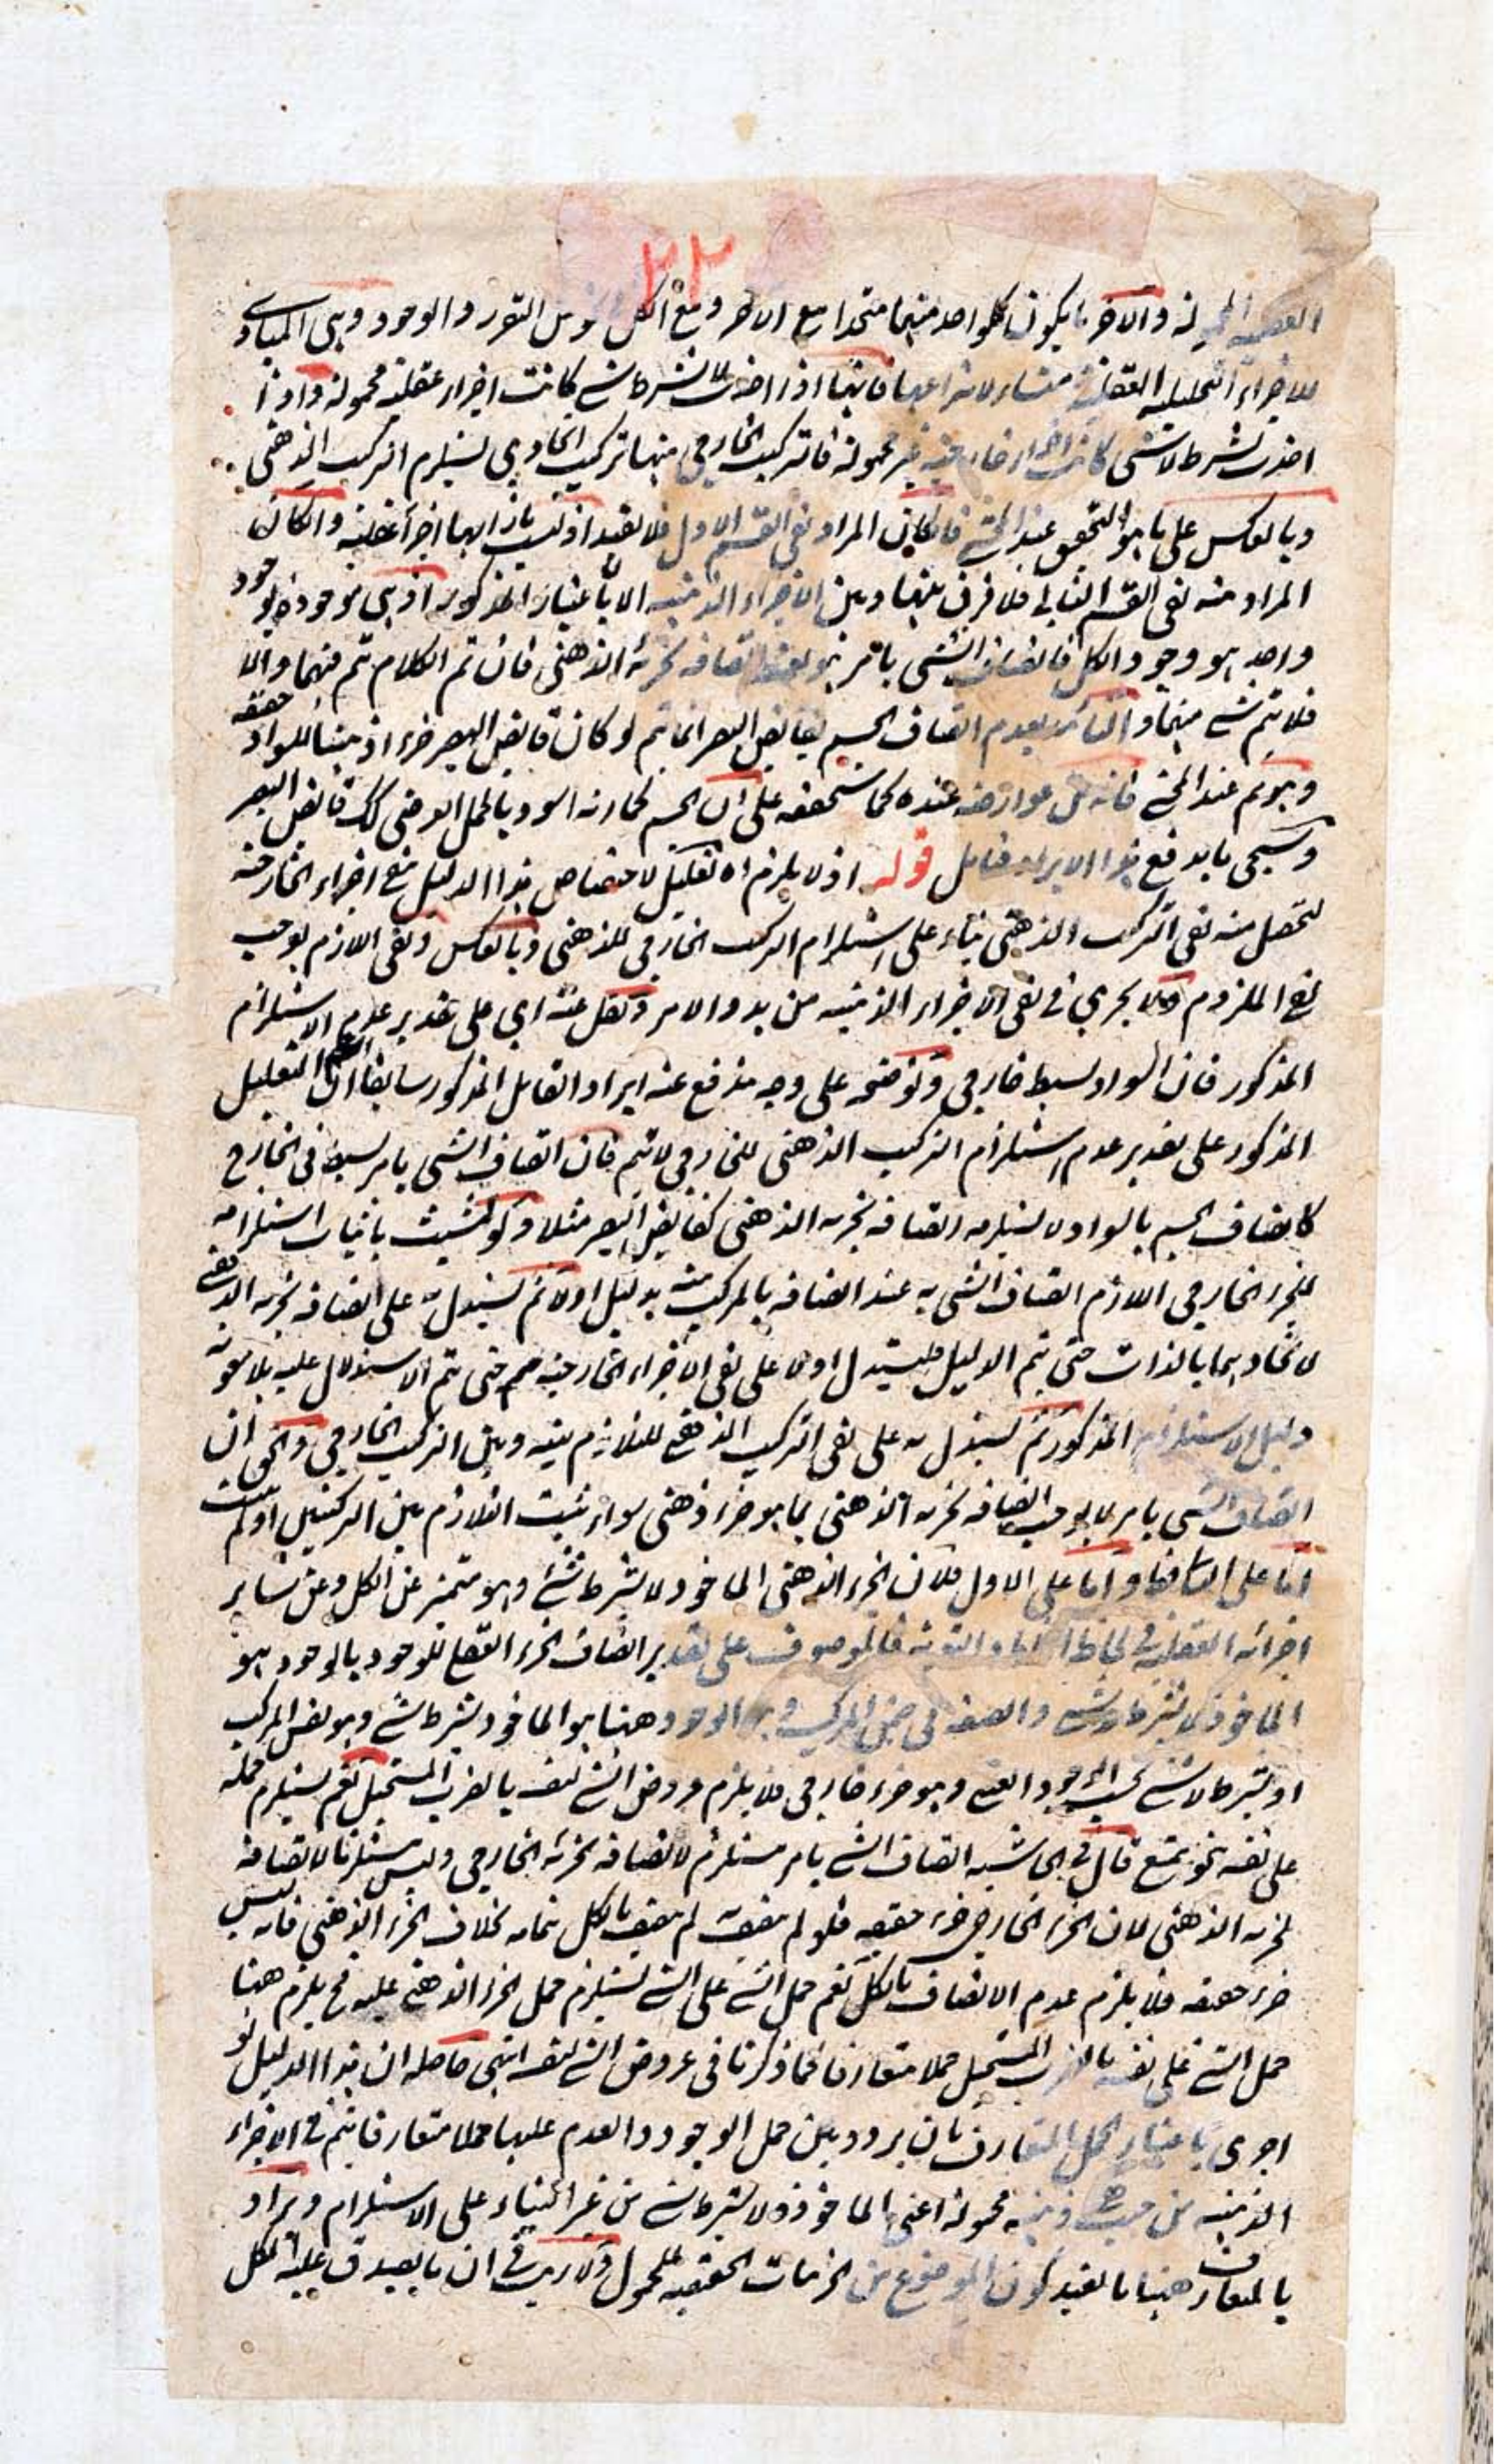 ٢٢
والآخر ما يكون كل واحد منهما متحدا مع الآخر ومع الكل في التقرر والوجود وهي المبادي
للاجزاء التحليلية العقلية منشاء لانتزاعها فانها اذا اخذت لا بشرط شي كانت اجزاء عقلية محمولة واذا
اخذت بشرط لا شي كانت اجزاء خارجية غير محمولة فالتركيب الخارجي منها تركيب اتحادي يستلزم التركيب الذهني
وبالعكس على ما هو التحقيق عند المحشي فان كان المراد نفي القسم الاول فلا يفيد اذ ليست بازائها اجزاء عقلية وان كان
المراد منه نفي القسم الثاني فلا فرق بينها وبين الاجزاء الذهنية الا باعتبار المذكور اذ هي موجودة بوجود
واحد هو وجود الكل فاتصاف الشي بامر هو بعينه اتصافه بجزئه الذهني فان تم الكلام تم فيهما والا
فلا يتم شي منهما والتأييد بعدم اتصاف الجسم بقابض البصر انما يتم لو كان قابض البصر جزء اذهنيا للسواد حقيقة
وهو ثم عند المحشي فانه من عوارضه عنده كما ستحققه على ان الجسم كما انه اسود بالحمل العرضي كك قابض البصر
وسيجي ما يدفع هذا الايراد فتامل قوله اذ لا يلزم اه تعليل لاختصاص هذا الدليل بنفي اجزاء الخارجية
لتحصل منه نفي التركيب الذهني بناء على استلزام التركيب الخارجي للذهني وبالعكس ونفي اللازم يوجب
نفي الملزوم ولا يجري في نفي الاجزاء الذهنية من بدو الامر ونقل عنه اي على تقدير عدم الاستلزام
المذكور فان السواد بسيط خارجي وتوضيحه على وجه يندفع عنه ايراد القايل المذكور سابقا ان التعليل
المذكور على تقدير عدم استلزام التركيب الذهني للخارجي لا تتم فان اتصاف الشي بامر بسيط في الخارج
كاتصاف الجسم بالسواد لا يستلزم اتصافه بجزءه الذهني كقابض البصر مثلا ولو تشبث باثبات استلزامه
للجزء الخارجي اللازم اتصاف الشي به عند اتصافه بالمركب منه بدليل اولا ثم يستدل به على اتصافه بجزءه الذهني
لاتحادهما بالذات حتى يتم الدليل فليستدل اولا على نفي الاجزاء الخارجية حتى تتم الاستدلال عليه بلا مؤنة
دليل الاستلزام المذكور ثم يستدل به على نفي التركيب الذهني للتلازم بينه وبين التركيب الخارجي والحق ان
اتصاف الشي بامر لا يوجب اتصافه بجزءه الذهني بما هو جزء ذهني سواء ثبت التلازم بين التركيبين او لم يثبت
اما على الثاني فظ واما على الاول فلان الجزء الذهني الماخوذ لا بشرط شي وهو متميز عن الكل وعن سائر
اجزائه العقلية في لحاظ فالموصوف على تقدير اتصاف الجزء العقلي للوجود بالوجود هو
الماخوذ لا بشرط شي والصفة في ضمن المركب الوجود هنا هو الماخوذ بشرط شي وهو نفس المركب
او بشرط لا شي بحسب الوجود العقلي وهو جزء خارجي فلا يلزم عروض الشي لنفسه بالضرب المستحيل نعم يستلزم حمله
على نفسه نحو يمتنع قال في الحاشية اتصاف الشي بامر مستلزم لاتصافه بجزئه الخارجي وليس مستلزما لاتصافه
بجزءه الذهني لان الجزء الخارجي جزء حقيقة فلو لم يتصف به لم يتصف بالكل بتمامه بخلاف الجزء الذهني فانه ليس
جزء حقيقة فلا يلزم عدم الاتصاف بالكل نعم حمل الشي على الشي يستلزم حمل الجزء الذهني عليه فح يلزم هنا
حمل الشي على نفسه بالضرب المستحيل حملا متعارفا فما ذكرنا في عروض الشي لنفسه انتهى حاصله ان هذا الدليل لو
اجرى باعتبار الحمل المتعارف بان يردد بين حمل الوجود والعدم عليها حملا متعارفا يتم في الاجزاء
الذهنية من حيث هي ذهنية محمولة اعني الماخوذة لا بشرط شي من غير البناء على الاستلزام ويراد
بالمتعارف هنا ما يفيد كون الموضوع من الجزئيات الحقيقية للمحمول ولا ريب في ان ما يصدق عليه الكل